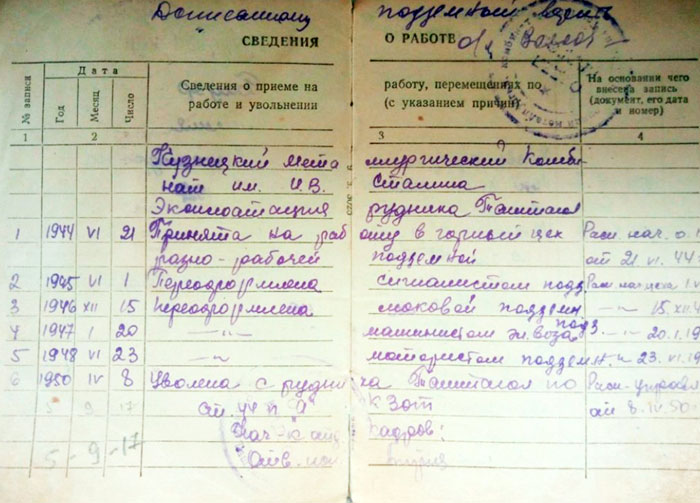 Дописанному подземной
СВЕДЕНИЯ О РАБОТЕ
№ записи
Дата
Год
Месяц
Число
Сведения о приеме на работу, перемещениях по
работе и увольнении (с указанием причин)
На основании чего
внесена запись
(документ, его дата
и номер)
1 2 3 4
Кузнецкий металлургический комби
нат им. И.В. Сталина
рудника Таштагол
1 1944 VI 21 Принята на работу в горный цех Расп. нач.
разно-рабочей подземной от 21 VI. 44
2 1945 VI 1 Переоформлена сигналистом подз
3 1946 XII 15 переоформлена подзем -"- 15. XII. 4
4 1947 I 20 -"- машинистом эл. воза подз. -"- 20. 1. 19
5 1948 VI 23 мотористом подзем. -"- 23. VI. 19
6 1950 IV 8 Уволена с рудника Таштагол по Расп.
ст. "А" КЗОТ от 8. IV. 50
5 9 17
Нач. кадров:
5-9-17